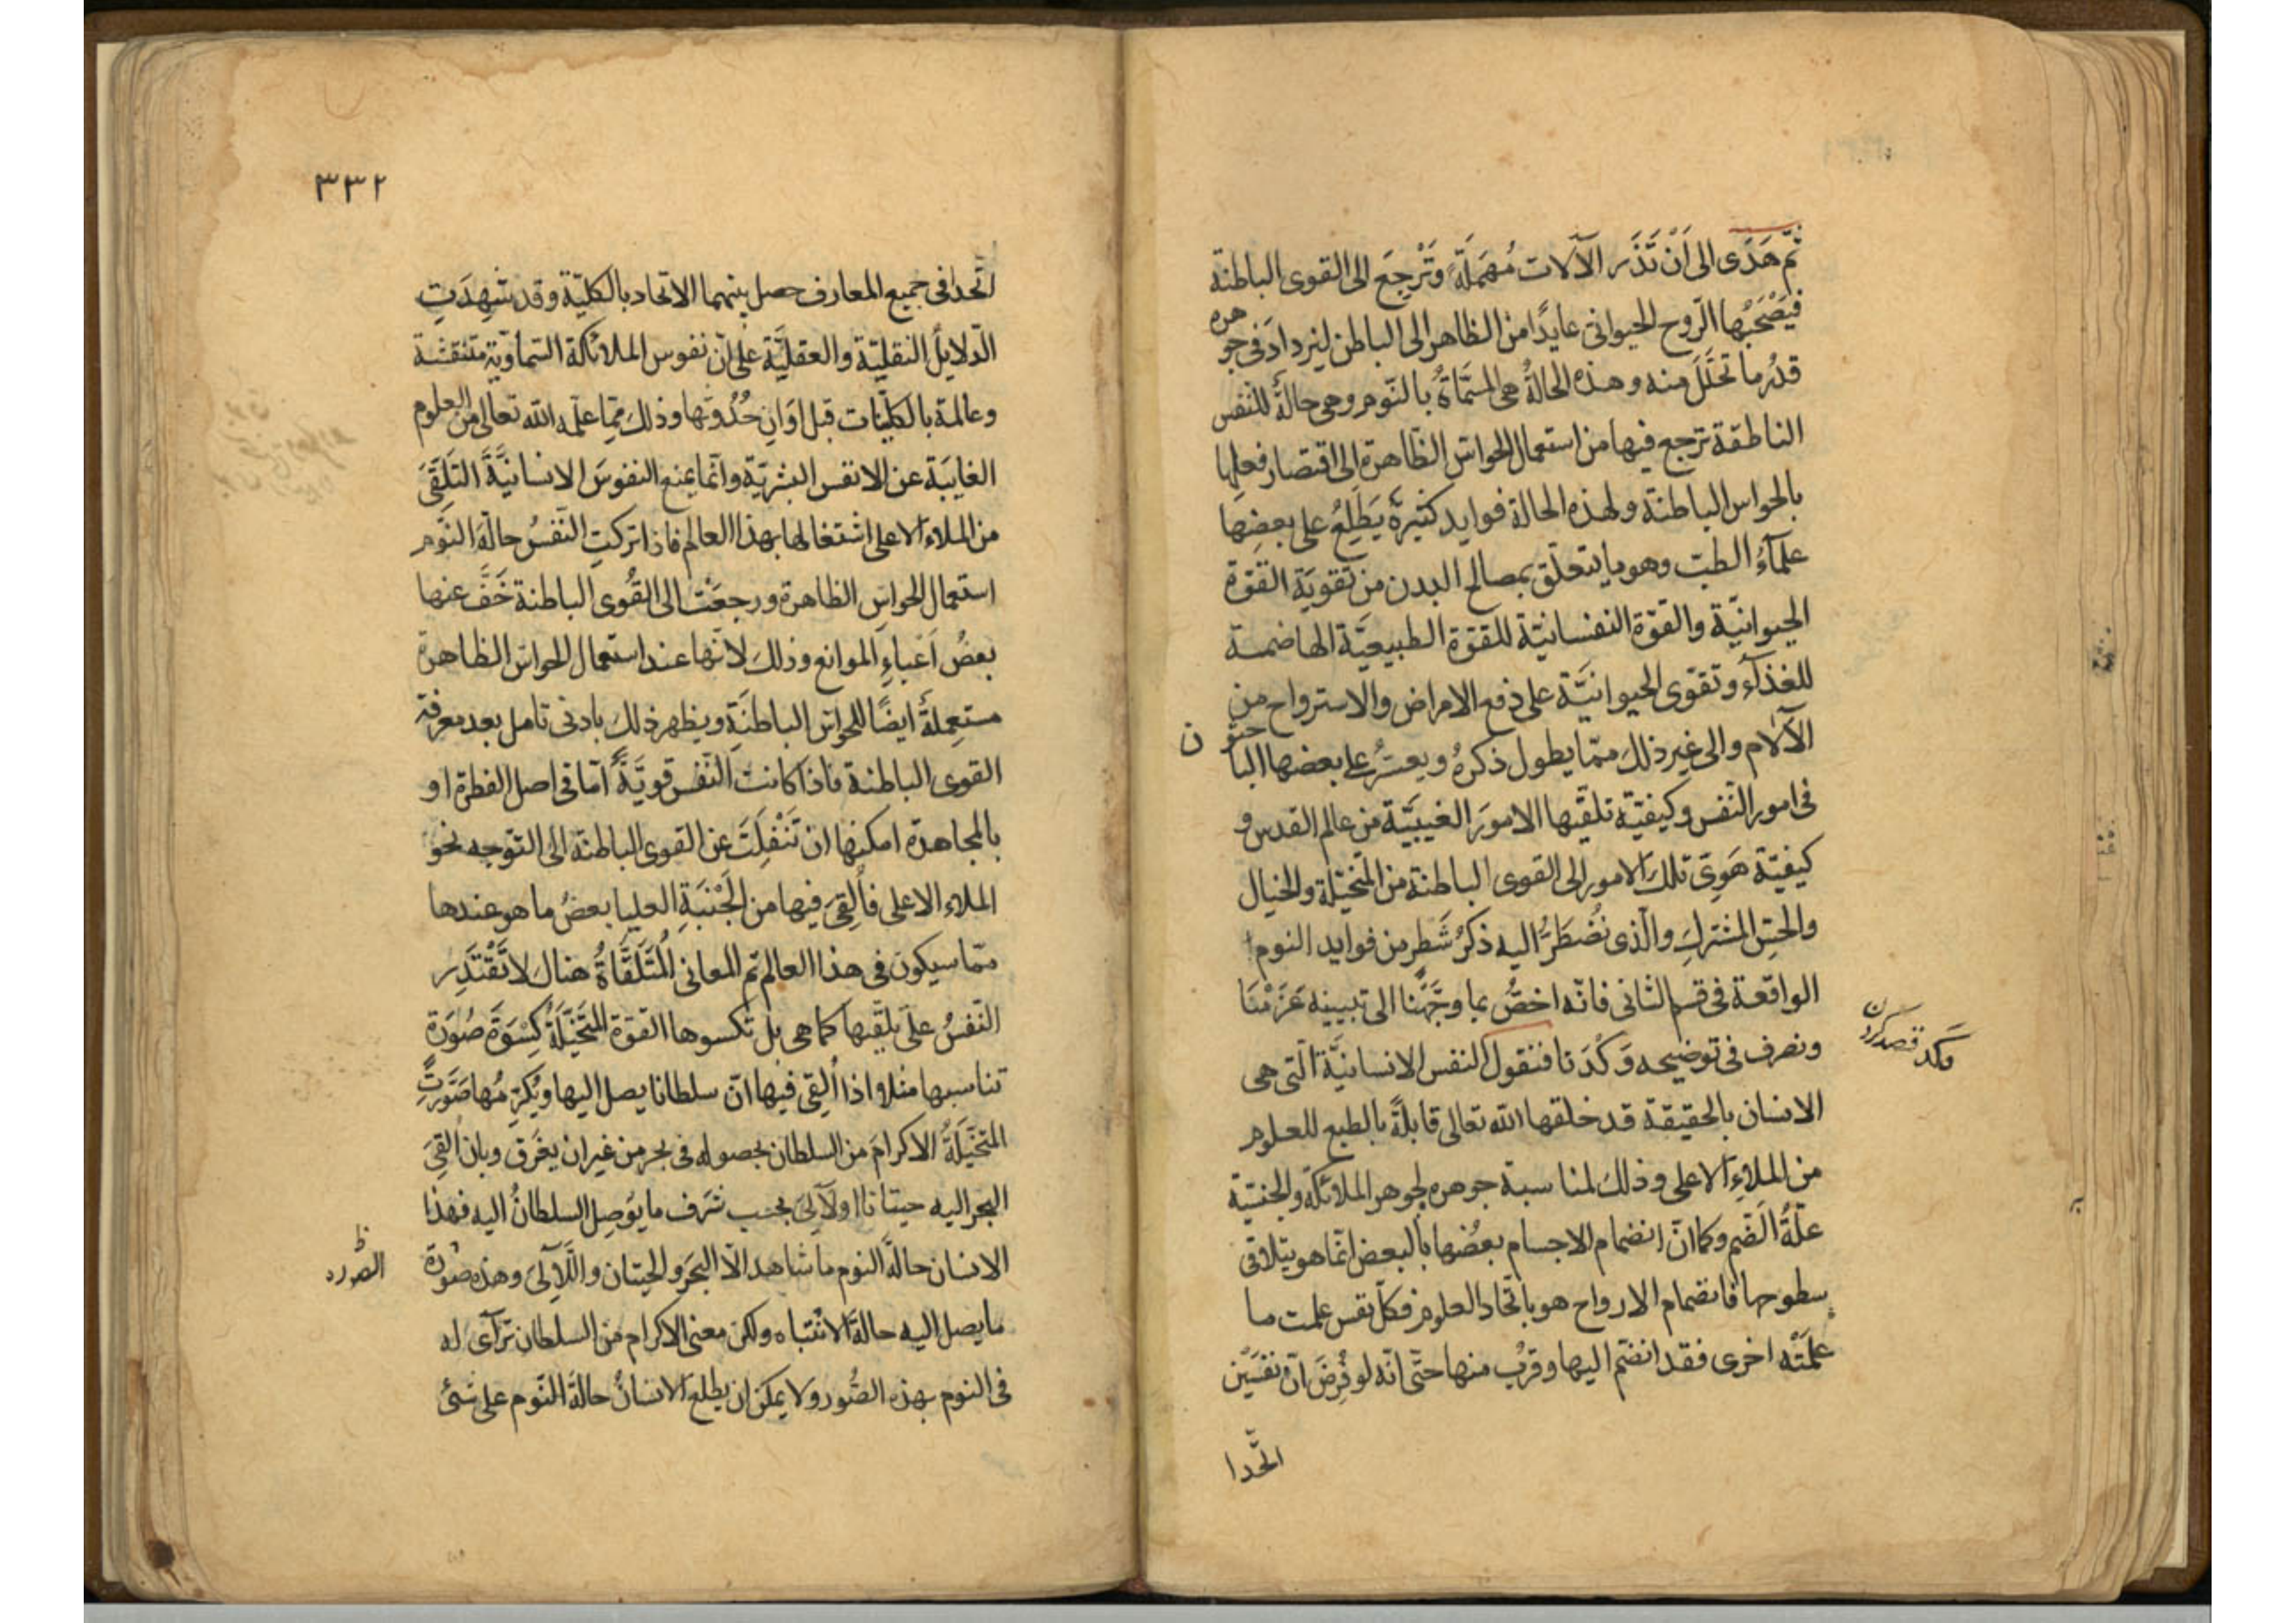 ثمّ هَدَى الى اَنْ تَذَر الآلات مُهمَلَةً وَتَرْجِعَ الى القوى الباطنة
فيَصْحَبُها الرّوح الحيوانى عايدًا من الظاهر الى الباطن ليزدادَ فى جوهره
قدرُ ما تحلّلَ منه وهذه الحالةُ هى المسمّاةُ بالنّوم وهى حالةٌ للنّفس
الناطقة ترجع فيها من استعمال الحواسّ الظّاهرة الى اقتصار فعلها
بالحواس الباطنة ولهذه الحالة فوايد كثيرةٌ يَطّلِعُ على بعضِها
علمآءُ الطبّ وهو ما يتعلّق بمصالح البدن من تقويَة القوّة
الحيوانيّة والقوّة النفسانيّة للقوّة الطبيعيَّة الهاضمة
للغذآء وتقوّى الحيوانيَّة على دفع الامراض والاسترواح من
الآلام والى غير ذلك ممّا يطول ذكرهُ ويعسرُ على بعضها الباحثون
فى امور النّفس وكيفيّة تلقّيها الامورَ الغيبيَّة من عالم القدس و
كيفيّة هَوِىّ تلك الامور الى القوى الباطنة من المتخيّلة والخيال
والحسّ المشترك والّذى نُضْطَرُّ اليه ذكرُ شَطرٍ من فوايد النوم
الواقعة فى قسم الثانى فانّه اخصُّ بما وجَّهْنا الى تبيينه عَزَمْنَا
ونصرف فى توضيحه وَكْدَنا فنقول النفس الانسانيَّة الّتى هى
وَكد قصد كردن
الانسان بالحقيقة قد خلقها الله تعالى قابلةً بالطبع للعلوم
من الملاءِ الاعلى وذلك لمناسبة جوهره لجوهر الملائكة والجنسيّة
علّةُ الضّم وكما انّ انضمام الاجسام بعضُها بالبعض انّما هو بتلاقى
سطوحها فانضمام الارواح هو باتّحاد العلوم فكلّ نفس علمت ما
علمَتْه اخرى فقد انضمّ اليها وقربُ منها حتّى انّه لو فُرِضَ انّ نفسَيْن
اتّحدا
٣٣٢
اتّحدا فى جميع المعارف حصل بينهما الاتحاد بالكليّة وقد شهِدَتِ
الدّلايلُ النقليّة والعقليَّة على انّ نفوس الملائكة السّماويّة متنقشة
وعالمة بالكلّيّات قبل اَوَانِ حُدُوثها وذلك ممّا علّمه الله تعالى من العلوم
الغايبَة عن الانفس البشريّة وانّما يمنع النفوسَ الانسانيَّةَ التلقّىَ
من الملاء الاعلى اشتغالها بهذا العالم فاذا تركتِ النّفسُ حالةَ النّوم
استعمال الحواسّ الظاهرة ورجعَتْ الى القُوى الباطنة خَفَّ عنها
بعضُ اَعباءِ الموانع وذلك لانّها عند استعمال الحواسّ الظاهرة
مستعِملةٌ ايضًا للحواسّ الباطنَةِ ويظهر ذلك بادنى تامل بعد معرفة
القوى الباطنة فاذا كانت النّفس قويَّةً امّا فى اصل الفطرة او
بالمجاهدة امكنها ان تَنْفلِتَ عن القوى الباطنة الى التوّجه نحو
الملاء الاعلى فأُلقِىَ فيها من الجَنَبَةِ العليا بعضُ ما هو عندها
ممّا سيكون فى هذا العالم ثم المعانى المُتَلَقَّاةُ هناك لا تَقْتَدِر
النّفسُ على تلقّيها كما هى بل تكسوها القوّة المتخيّلةُ كِسْوَةَ صُورَة
تناسبها مثلا اذا اُلقِى فيها انّ سلطانا يصل اليها ويُكرِمُها صَوَّرتِ
المتخيّلَةُ الاكرامَ من السلطان بحصوله فى بحر من غير ان يغرَق وبان اَلقىَ
البحر اليه حيتانا اولآلىَ بحسب شرَف ما يُوصِل السلطانُ اليه فهذا
الانسان حالةَ النوم ما شاهد الّا البحرَ والحيتان واللّآلِىَ وهذه صُورَة
ظ
الصورة
ما يصل اليه حالةَ الانتباه ولكن معنى الاكرام من السلطان ترآى له
فى النوم بهذه الصُّور ولا يمكن ان يطلع الانسانُ حالةَ النّوم على شئ